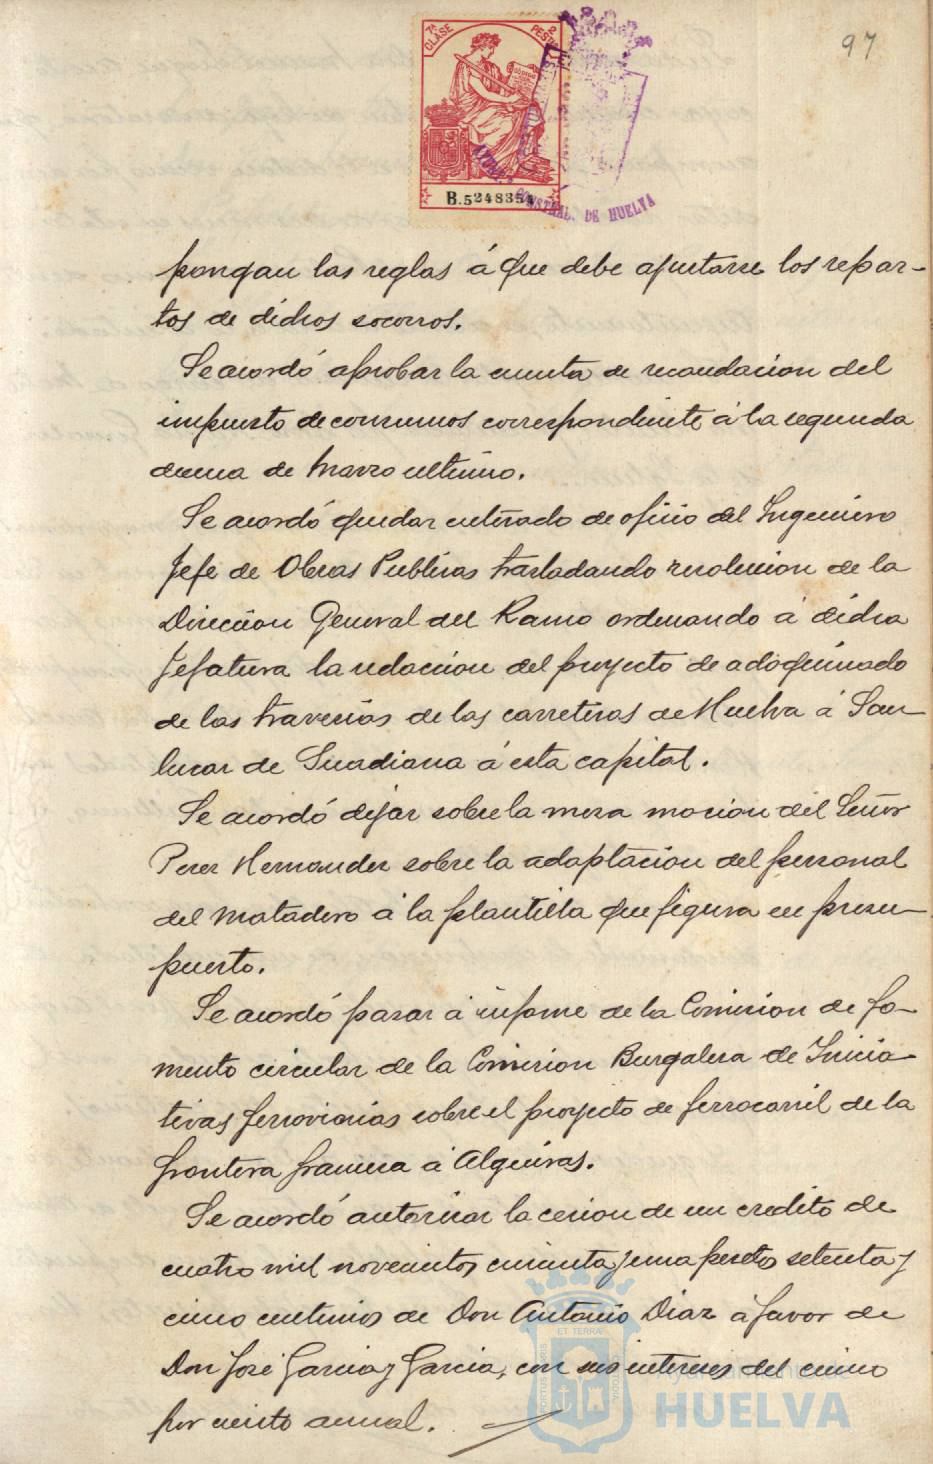 97
7ª CLASE
2 PESETAS
B.5248354
AYUNT. CONSTNAL. DE HUELVA
pongan las reglas á que debe ajustarse los repar-
tos de dichos socorros.
Se acordó aprobar la cuenta de recaudacion del
impuesto de consumos correspondiente á la segunda
decena de Marzo ultimo.
Se acordó quedar enterado de oficio del Ingeniero
Jefe de Obras Publicas trasladando resolucion de la
Direccion General del Ramo ordenando á dicha
Jefatura la redaccion del proyecto de adoquinado
de las travesias de las carreteras de Huelva á San-
lucar de Guadiana á esta capital.
Se acordó dejar sobre la mesa mocion del Señor
Perez Hernandez sobre la adaptacion del personal
del matadero á la plantilla que figura en presu-
puesto.
Se acordó pasar á informe de la Comision de fo-
mento circular de la Comision Burgalesa de Inicia-
tivas ferroviarias sobre el proyecto de ferrocarril de la
frontera francesa á Algeciras.
Se acordó autorizar la cesion de un credito de
cuatro mil novecientos cincuenta y una pesetas setenta y
cinco centimos de Don Antonio Diaz á favor de
Don José Garcia y Garcia, con sus intereses del cinco
por ciento anual.
Ayuntamiento de
HUELVA